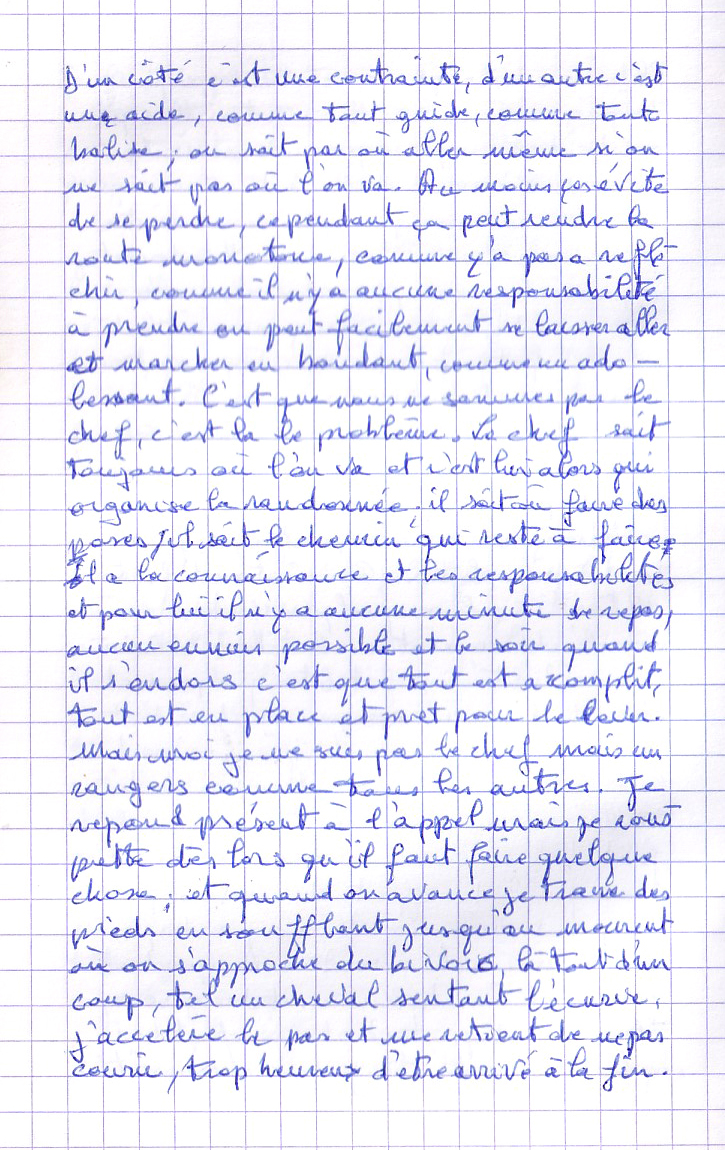 D'un côté c'est une contrainte, d'un autre c'est
une aide, comme tout guide, comme toute
balise, on sait par où aller même si on
ne sait pas où l'on va. Au moins ças évite
de se perdre, cependant ça peut rendre la
route monotone, comme y'a pas a réflé-
chir, comme il n'y a aucune responsabilité
à prendre on peut facilement se laisser aller
et marcher en boudant, comme un ado-
lessant. C'est que nous ne sommes pas le
chef, c'est la le problème. Le chef sait
toujours où l'on va et c'est lui alors qui
organise la randonnée. il sait où faire des
poses, il sait le chemin qui reste à faire,
Il a la connaissance et les responsabilités
et pour lui il n'y a aucune minute de repos,
aucun ennuis possible et le soir quand
il s'endors c'est que tout est accomplit,
tout est en place et pret pour le lever.
Mais moi je ne suis pas le chef mais un
rangers comme tous les autres. Je
repond présent à l'appel mais je rous
pette dès lors qu'il faut faire quelque
chose, et quand on avance je traine des
pieds en soufflant jusqu'au moment
où on s'approche du bivoic, là tout d'un
coup, tel un cheval sentant l'écurie,
j'accelère le pas et me retient de ne pas
courir, trop heureux d'être arrivé à la fin.